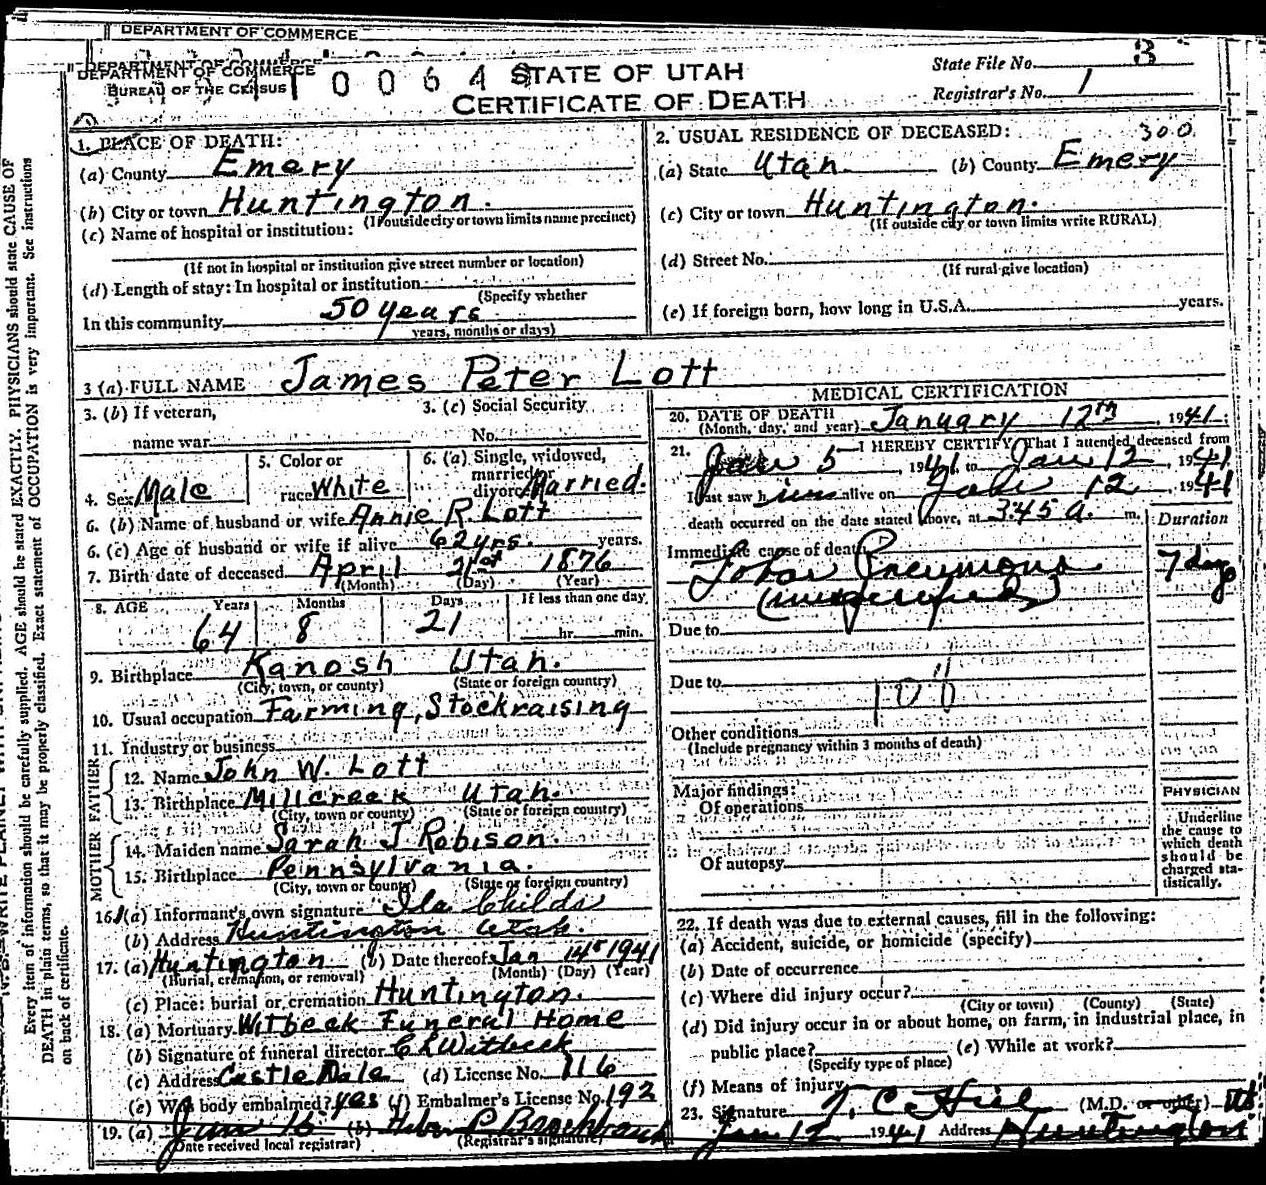 DEPARTMENT OF COMMERCE
DEPARTMENT OF COMMERCE
BUREAU OF THE CENSUS
0 0 6 4
STATE OF UTAH
CERTIFICATE OF DEATH
State File No. 3
Registrar's No. 1
1. PLACE OF DEATH:
(a) County Emery
(b) City or town Huntington.
(If outside city or town limits name precinct)
(c) Name of hospital or institution:
(If not in hospital or institution give street number or location)
(d) Length of stay: In hospital or institution
(Specify whether
In this community 50 years
years, months or days)
2. USUAL RESIDENCE OF DECEASED: 300
(a) State Utah (b) County Emery
(c) City or town Huntington.
(If outside city or town limits write RURAL)
(d) Street No.
(If rural give location)
(e) If foreign born, how long in U.S.A. years.
3 (a) FULL NAME James Peter Lott
3. (b) If veteran,
name war
3. (c) Social Security
No.
4. Sex Male
5. Color or
race White
6. (a) Single, widowed,
married or
divorced Married.
6. (b) Name of husband or wife Annie R. Lott
6. (c) Age of husband or wife if alive 62 yrs. years.
7. Birth date of deceased April 21st 1876
(Month) (Day) (Year)
8. AGE Years Months Days If less than one day
64 8 21 hr. min.
9. Birthplace Kanosh Utah.
(City, town, or county) (State or foreign country)
10. Usual occupation Farming, Stockraising
11. Industry or business
FATHER
12. Name John W. Lott
13. Birthplace Millcreek Utah.
(City, town or county) (State or foreign country)
MOTHER
14. Maiden name Sarah J Robison.
15. Birthplace Pennsylvania.
(City, town or county) (State or foreign country)
16. (a) Informant's own signature Ila Childs
(b) Address Huntington Utah.
17. (a) Huntington (b) Date thereof Jan 14th 1941
(Burial, cremation, or removal) (Month) (Day) (Year)
(c) Place: burial or cremation Huntington.
18. (a) Mortuary Witbeck Funeral Home
(b) Signature of funeral director C L Witbeck
(c) Address Castle Dale (d) License No. 116
(e) Was body embalmed? yes (f) Embalmer's License No. 192
19. (a) (b)
Date received local registrar) (Registrar's signature)
MEDICAL CERTIFICATION
20. DATE OF DEATH
(Month, day, and year) January 12th, 1941
21. I HEREBY CERTIFY, That I attended deceased from
Jan 5, 1941, to Jan 12, 1941
I last saw him alive on Jan 12, 1941
death occurred on the date stated above, at 3:45 a. m.
Duration
Immediate cause of death
Lobar Pneumonia 7 days
Due to
Due to
Other conditions
(Include pregnancy within 3 months of death)
Major findings:
Of operations
Of autopsy
PHYSICIAN
Underline
the cause to
which death
should be
charged sta-
tistically.
22. If death was due to external causes, fill in the following:
(a) Accident, suicide, or homicide (specify)
(b) Date of occurrence
(c) Where did injury occur?
(City or town) (County) (State)
(d) Did injury occur in or about home, on farm, in industrial place, in
public place? (e) While at work?
(Specify type of place)
(f) Means of injury
23. Signature T. C. Hill (M.D. or other)
Jan 12 1941 Address Huntington
Every item of information should be carefully supplied. AGE should be stated EXACTLY. PHYSICIANS should state CAUSE OF
DEATH in plain terms, so that it may be properly classified. Exact statement of OCCUPATION is very important. See instructions
on back of certificate.